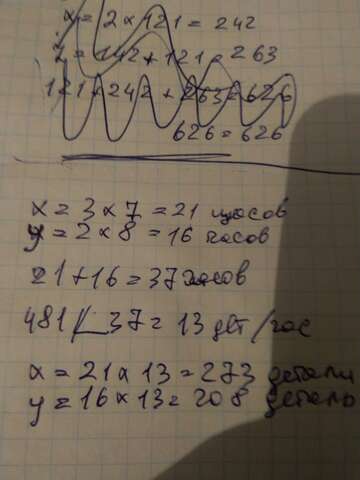 x = 2 × 121 = 242
z = 142 + 121 = 263
121 + 242 + 263 = 626
626 = 626
x = 3 × 7 = 21 часов
y = 2 × 8 = 16 часов
21 + 16 = 37 часов
481 / 37 = 13 дет / час
x = 21 × 13 = 273 детали
y = 16 × 13 = 208 детально